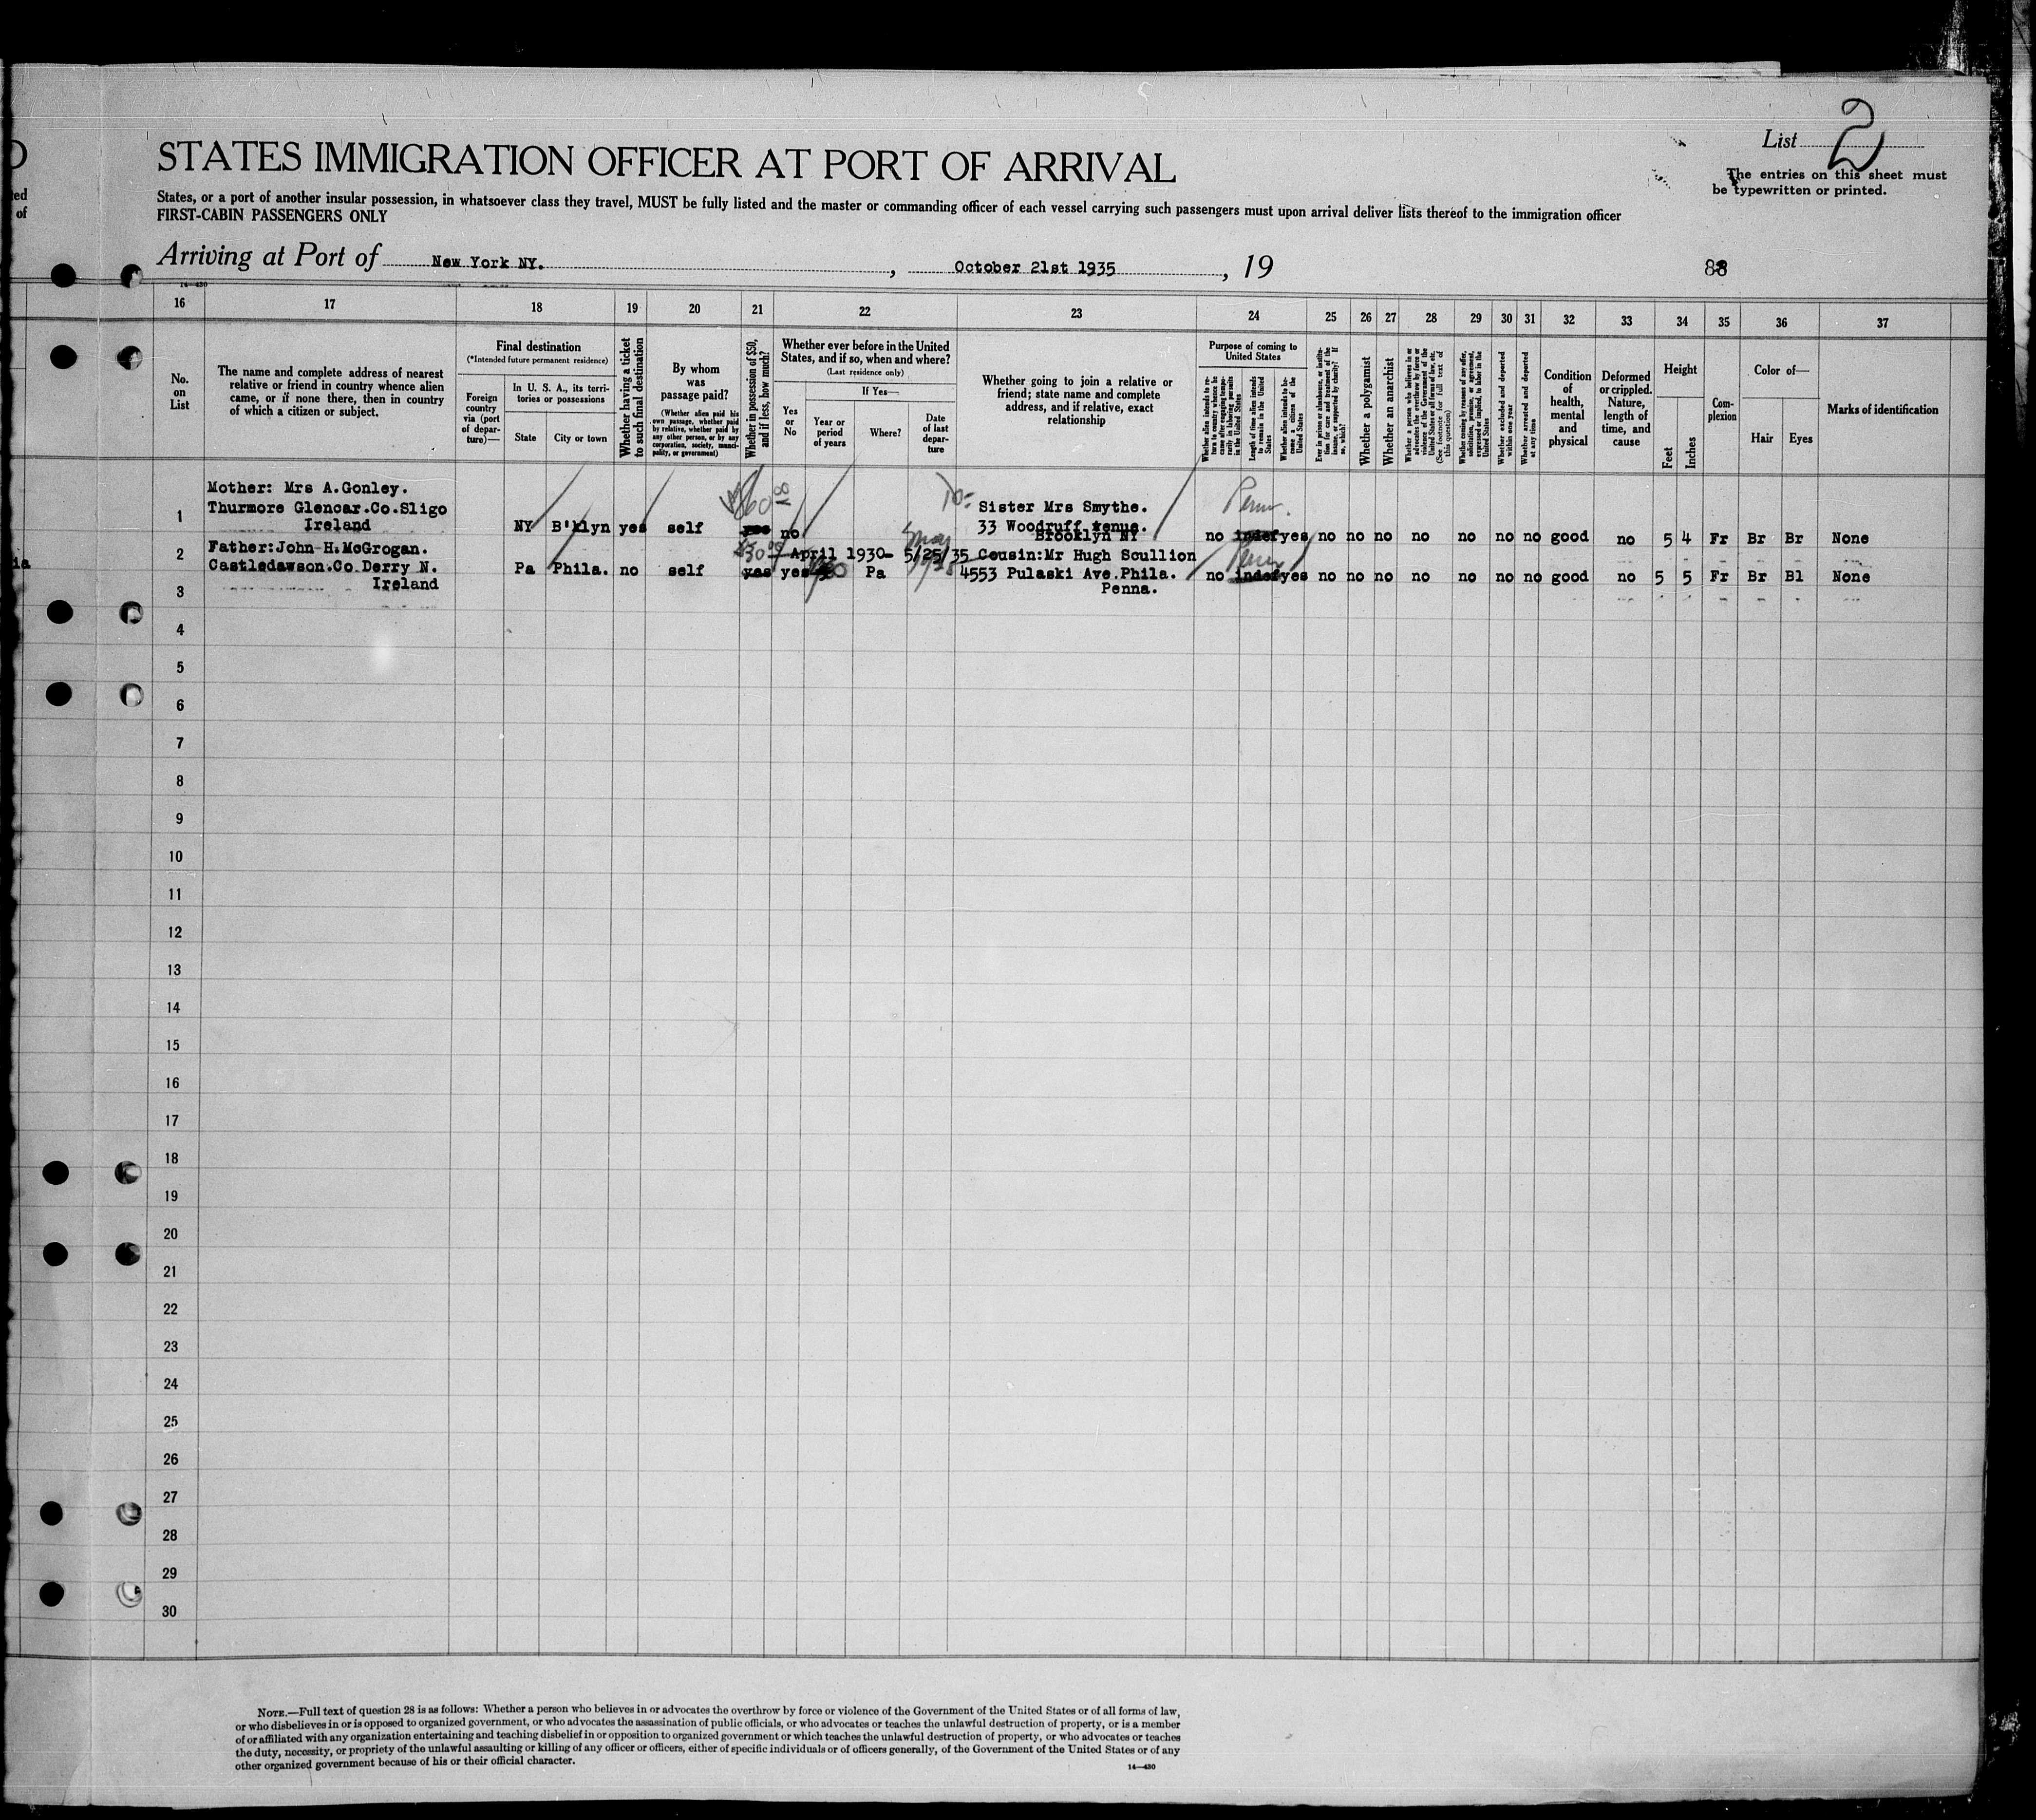 List 2
The entries on this sheet must
be typewritten or printed.
STATES IMMIGRATION OFFICER AT PORT OF ARRIVAL
ed
of
States, or a port of another insular possession, in whatsoever class they travel, MUST be fully listed and the master or commanding officer of each vessel carrying such passengers must upon arrival deliver lists thereof to the immigration officer
FIRST-CABIN PASSENGERS ONLY
Arriving at Port of New York NY. , October 21st 1935 , 19
14—430
16 17 18 19 20 21 22 23 24 25 26 27 28 29 30 31 32 33 34 35 36 37
No.
on
List
The name and complete address of nearest
relative or friend in country whence alien
came, or if none there, then in country
of which a citizen or subject.
Final destination
(*Intended future permanent residence)
Foreign
country
via (port
of depar-
ture)—
In U. S. A., its terri-
tories or possessions
State
City or town
Whether having a ticket
to such final destination
By whom
was
passage paid?
(Whether alien paid his
own passage, whether paid
by relative, whether paid by
any other person, or by any
corporation, society, munici-
pality, or government)
Whether in possession of $50,
and if less, how much?
Whether ever before in the United
States, and if so, when and where?
(Last residence only)
Yes
or
No
If Yes—
Year or
period
of years
Where?
Date
of last
depar-
ture
Whether going to join a relative or
friend; state name and complete
address, and if relative, exact
relationship
Purpose of coming to
United States
Whether alien intends to re-
turn to country whence he
came after engaging tempo-
rarily in laboring pursuits
in the United States
Length of time alien intends
to remain in the United
States
Whether alien intends to be-
come a citizen of the
United States
Ever in prison or almshouse, or institu-
tion for care and treatment of the
insane, or supported by charity? If
so, which?
Whether a polygamist
Whether an anarchist
Whether a person who believes in or
advocates the overthrow by force or
violence of the Government of the
United States or all forms of law, etc.
(See footnote for full text of
this question)
Whether coming by reasons of any offer,
solicitation, promise, or agreement,
expressed or implied, to labor in the
United States
Whether excluded and deported
within one year
Whether arrested and deported
at any time
Condition
of
health,
mental
and
physical
Deformed
or crippled.
Nature,
length of
time, and
cause
Height
Feet
Inches
Com-
plexion
Color of—
Hair
Eyes
Marks of identification
Mother: Mrs A.Gonley.
$60.00 To- Sister Mrs Smythe. Perm.
1 Thurmore Glencar.Co.Sligo
Ireland NY B'klyn yes self yes no 33 Woodruff
Brooklyn NY no indef yes no no no no no no no good no 5 4 Fr Br Br None
2 Father:John H.McGrogan. April 1930- 5/25/35 Cousin:Mr Hugh Scullion Perm
Castledawson.Co Derry N. Pa Phila. no self yes yes Pa 4553 Pulaski Ave.Phila. no indef yes no no no no no no no good no 5 5 Fr Br Bl None
Ireland Penna.
3
4
5
6
7
8
9
10
11
12
13
14
15
16
17
18
19
20
21
22
23
24
25
26
27
28
29
30
NOTE.—Full text of question 28 is as follows: Whether a person who believes in or advocates the overthrow by force or violence of the Government of the United States or of all forms of law,
or who disbelieves in or is opposed to organized government, or who advocates the assassination of public officials, or who advocates or teaches the unlawful destruction of property, or is a member
of or affiliated with any organization entertaining and teaching disbelief in or opposition to organized government or which teaches the unlawful destruction of property, or who advocates or teaches
the duty, necessity, or propriety of the unlawful assaulting or killing of any officer or officers, either of specific individuals or of officers generally, of the Government of the United States or of any
other organized government because of his or their official character.
14—430